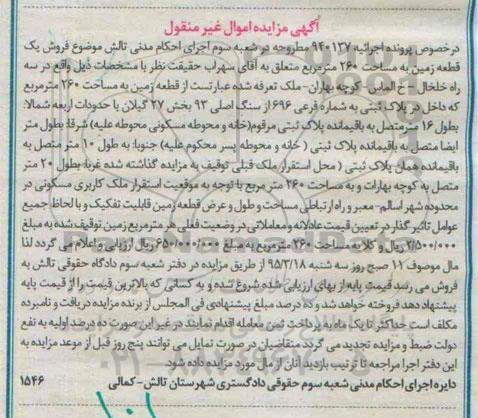 آگهی مزایده اموال غیر منقول
در خصوص پرونده اجرائیه ۹۴۰۱۳۷ مطروحه در شعبه سوم اجرای احکام مدنی تالش موضوع فروش یک
قطعه زمین به مساحت ۲۶۰ مترمربع متعلق به آقای سهراب حقیقت نظر با مشخصات ذیل واقع در سه
راه خلخال - خ الماس - کوچه بهاران - ملک تعرفه شده عبارتست از قطعه زمین به مساحت ۲۶۰ مترمربع
که داخل در پلاک ثبتی به شماره فرعی ۶۹۶ از سنگ اصلی ۹۳ بخش ۲۷ گیلان با حدودات اربعه شمالا:
بطول ۱۶ متر متصل به باقیمانده پلاک ثبتی مرقوم (خانه و محوطه مسکونی محوطه علیه) شرقا: بطول متر
ایضا متصل به باقیمانده پلاک ثبتی ( خانه و محوطه پسر محکوم علیه) جنوبا: به طول ۱۰ متر متصل به
باقیمانده همان پلاک ثبتی ( محل استقرار ملک قبلی توقیف به مزایده گذاشته شده غربا: بطول ۲۰ متر
متصل به کوچه بهارات و به مساحت ۲۶۰ متر مربع با توجه به موقعیت استقرار ملک کاربری مسکونی در
محدوده شهر اسالم - معبر و راه ارتباطی مساحت و طول و عرض قطعه زمین قابلیت تفکیک و با لحاظ جمیع
عوامل تاثیر گذار در تعیین قیمت عادلانه و معاملاتی در وضعیت فعلی هر مترمربع زمین توقیف شده به مبلغ
۲/۵۰۰/۰۰۰ ریال و کلا به مساحت ۲۶۰ مترمربع به مبلغ ۶۵۰/۰۰۰/۰۰۰ ریال ارزیابی و اعلام می گردد لذا
مال موصوف ۱۱ صبح روز سه شنبه ۹۵/۳/۱۸ از طریق مزایده در دفتر شعبه سوم دادگاه حقوقی تالش به
فروش می رسد قیمت پایه از بهای ارزیابی شده شروع شده و به کسانی که بالاترین قیمت را از قیمت پایه
پیشنهاد دهد فروخته خواهد شد و ده درصد مبلغ پیشنهادی فی المجلس از برنده مزایده دریافت و نامبرده
مکلف است حداکثر تا یک ماه به پرداخت ثمن معامله اقدام نمایند در غیر این صورت ده درصد اولیه به نفع
دولت ضبط و مزایده تجدید می گردد متقاضیان در صورت تمایل می توانند پنج روز قبل از موعد مزایده به
این دفتر اجرا مراجعه تا ترتیب بازدید آنان از مال مورد مزایده داده شود
دایره اجرای احکام مدنی شعبه سوم حقوقی دادگستری شهرستان تالش - کمالی ۱۵۴۶